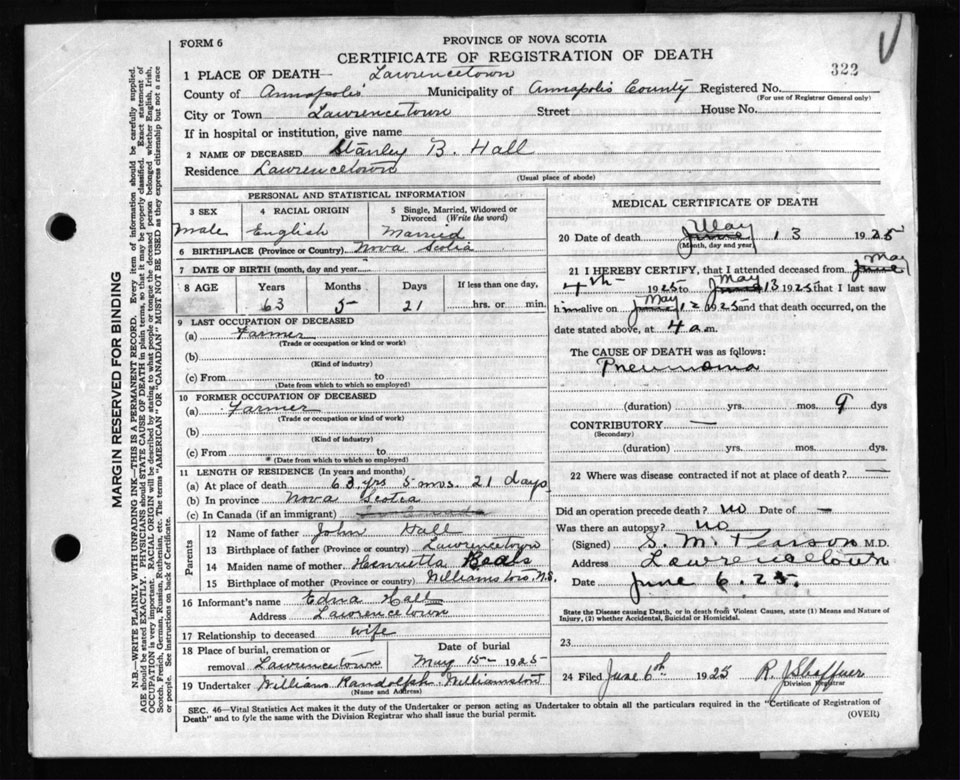 PROVINCE OF NOVA SCOTIA
FORM 6
CERTIFICATE OF REGISTRATION OF DEATH
322
1 PLACE OF DEATH— Lawrencetown
County of Annapolis Municipality of Annapolis County Registered No.
(For use of Registrar General only)
City or Town Lawrencetown Street House No.
If in hospital or institution, give name
2 NAME OF DECEASED Stanley B. Hall
Residence Lawrencetown
(Usual place of abode)
PERSONAL AND STATISTICAL INFORMATION
3 SEX 4 RACIAL ORIGIN 5 Single, Married, Widowed or Divorced (Write the word)
Male English Married
6 BIRTHPLACE (Province or Country) Nova Scotia
7 DATE OF BIRTH (month, day and year)
8 AGE Years Months Days If less than one day,
63 5 21 hrs. or min.
9 LAST OCCUPATION OF DECEASED
(a) Farmer
(Trade or occupation or kind of work)
(b)
(Kind of industry)
(c) From to
(Date from which to which so employed)
10 FORMER OCCUPATION OF DECEASED
(a) Farmer
(Trade or occupation or kind of work)
(b)
(Kind of industry)
(c) From to
(Date from which to which so employed)
11 LENGTH OF RESIDENCE (In years and months)
(a) At place of death 63 yrs 5 mos. 21 days
(b) In province Nova Scotia
(c) In Canada (if an immigrant)
Parents
12 Name of father John Hall
13 Birthplace of father (Province or country) Lawrencetown
14 Maiden name of mother Henrietta Beals
15 Birthplace of mother (Province or country) Williamston N.S.
16 Informant's name Edna Hall
Address Lawrencetown
17 Relationship to deceased wife
18 Place of burial, cremation or removal Lawrencetown
Date of burial
May 15 1925
19 Undertaker William Randolph Williamston
(Name and Address)
MEDICAL CERTIFICATE OF DEATH
20 Date of death June May 13 1925
(Month, day and year)
21 I HEREBY CERTIFY, that I attended deceased from June May
4th 1925 to June May 13 1925 that I last saw
him alive on June May 12 1925 and that death occurred, on the
date stated above, at 4 a.m.
The CAUSE OF DEATH was as follows:
Pneumonia
(duration) yrs. mos. 9 dys
CONTRIBUTORY —
(Secondary)
(duration) yrs. mos. dys
22 Where was disease contracted if not at place of death? —
Did an operation precede death? no Date of —
Was there an autopsy? no
(Signed) S. M. Pearson M.D.
Address Lawrencetown
Date June 6. 25.
State the Disease causing Death, or in death from Violent Causes, state (1) Means and Nature of
Injury, (2) whether Accidental, Suicidal or Homicidal.
23
24 Filed June 6th 1925 R. J. Shaffner
Division Registrar
SEC. 46—Vital Statistics Act makes it the duty of the Undertaker or person acting as Undertaker to obtain all the particulars required in the "Certificate of Registration of
Death" and to fyle the same with the Division Registrar who shall issue the burial permit.
(OVER)
MARGIN RESERVED FOR BINDING
N.B.—WRITE PLAINLY WITH UNFADING INK—THIS IS A PERMANENT RECORD. Every item of information should be carefully supplied.
AGE should be stated EXACTLY. PHYSICIANS should STATE CAUSE OF DEATH in plain terms, so that it may be properly classified. Exact statement of
OCCUPATION is very important. RACIAL ORIGIN will be described by stating to what people or tongue the deceased person belonged whether English, Irish,
Scotch, French, German, Russian, Ruthenian, etc. The terms "AMERICAN" OR "CANADIAN" MUST NOT BE USED as they express citizenship but not a race
or people. See instructions on back of Certificate.